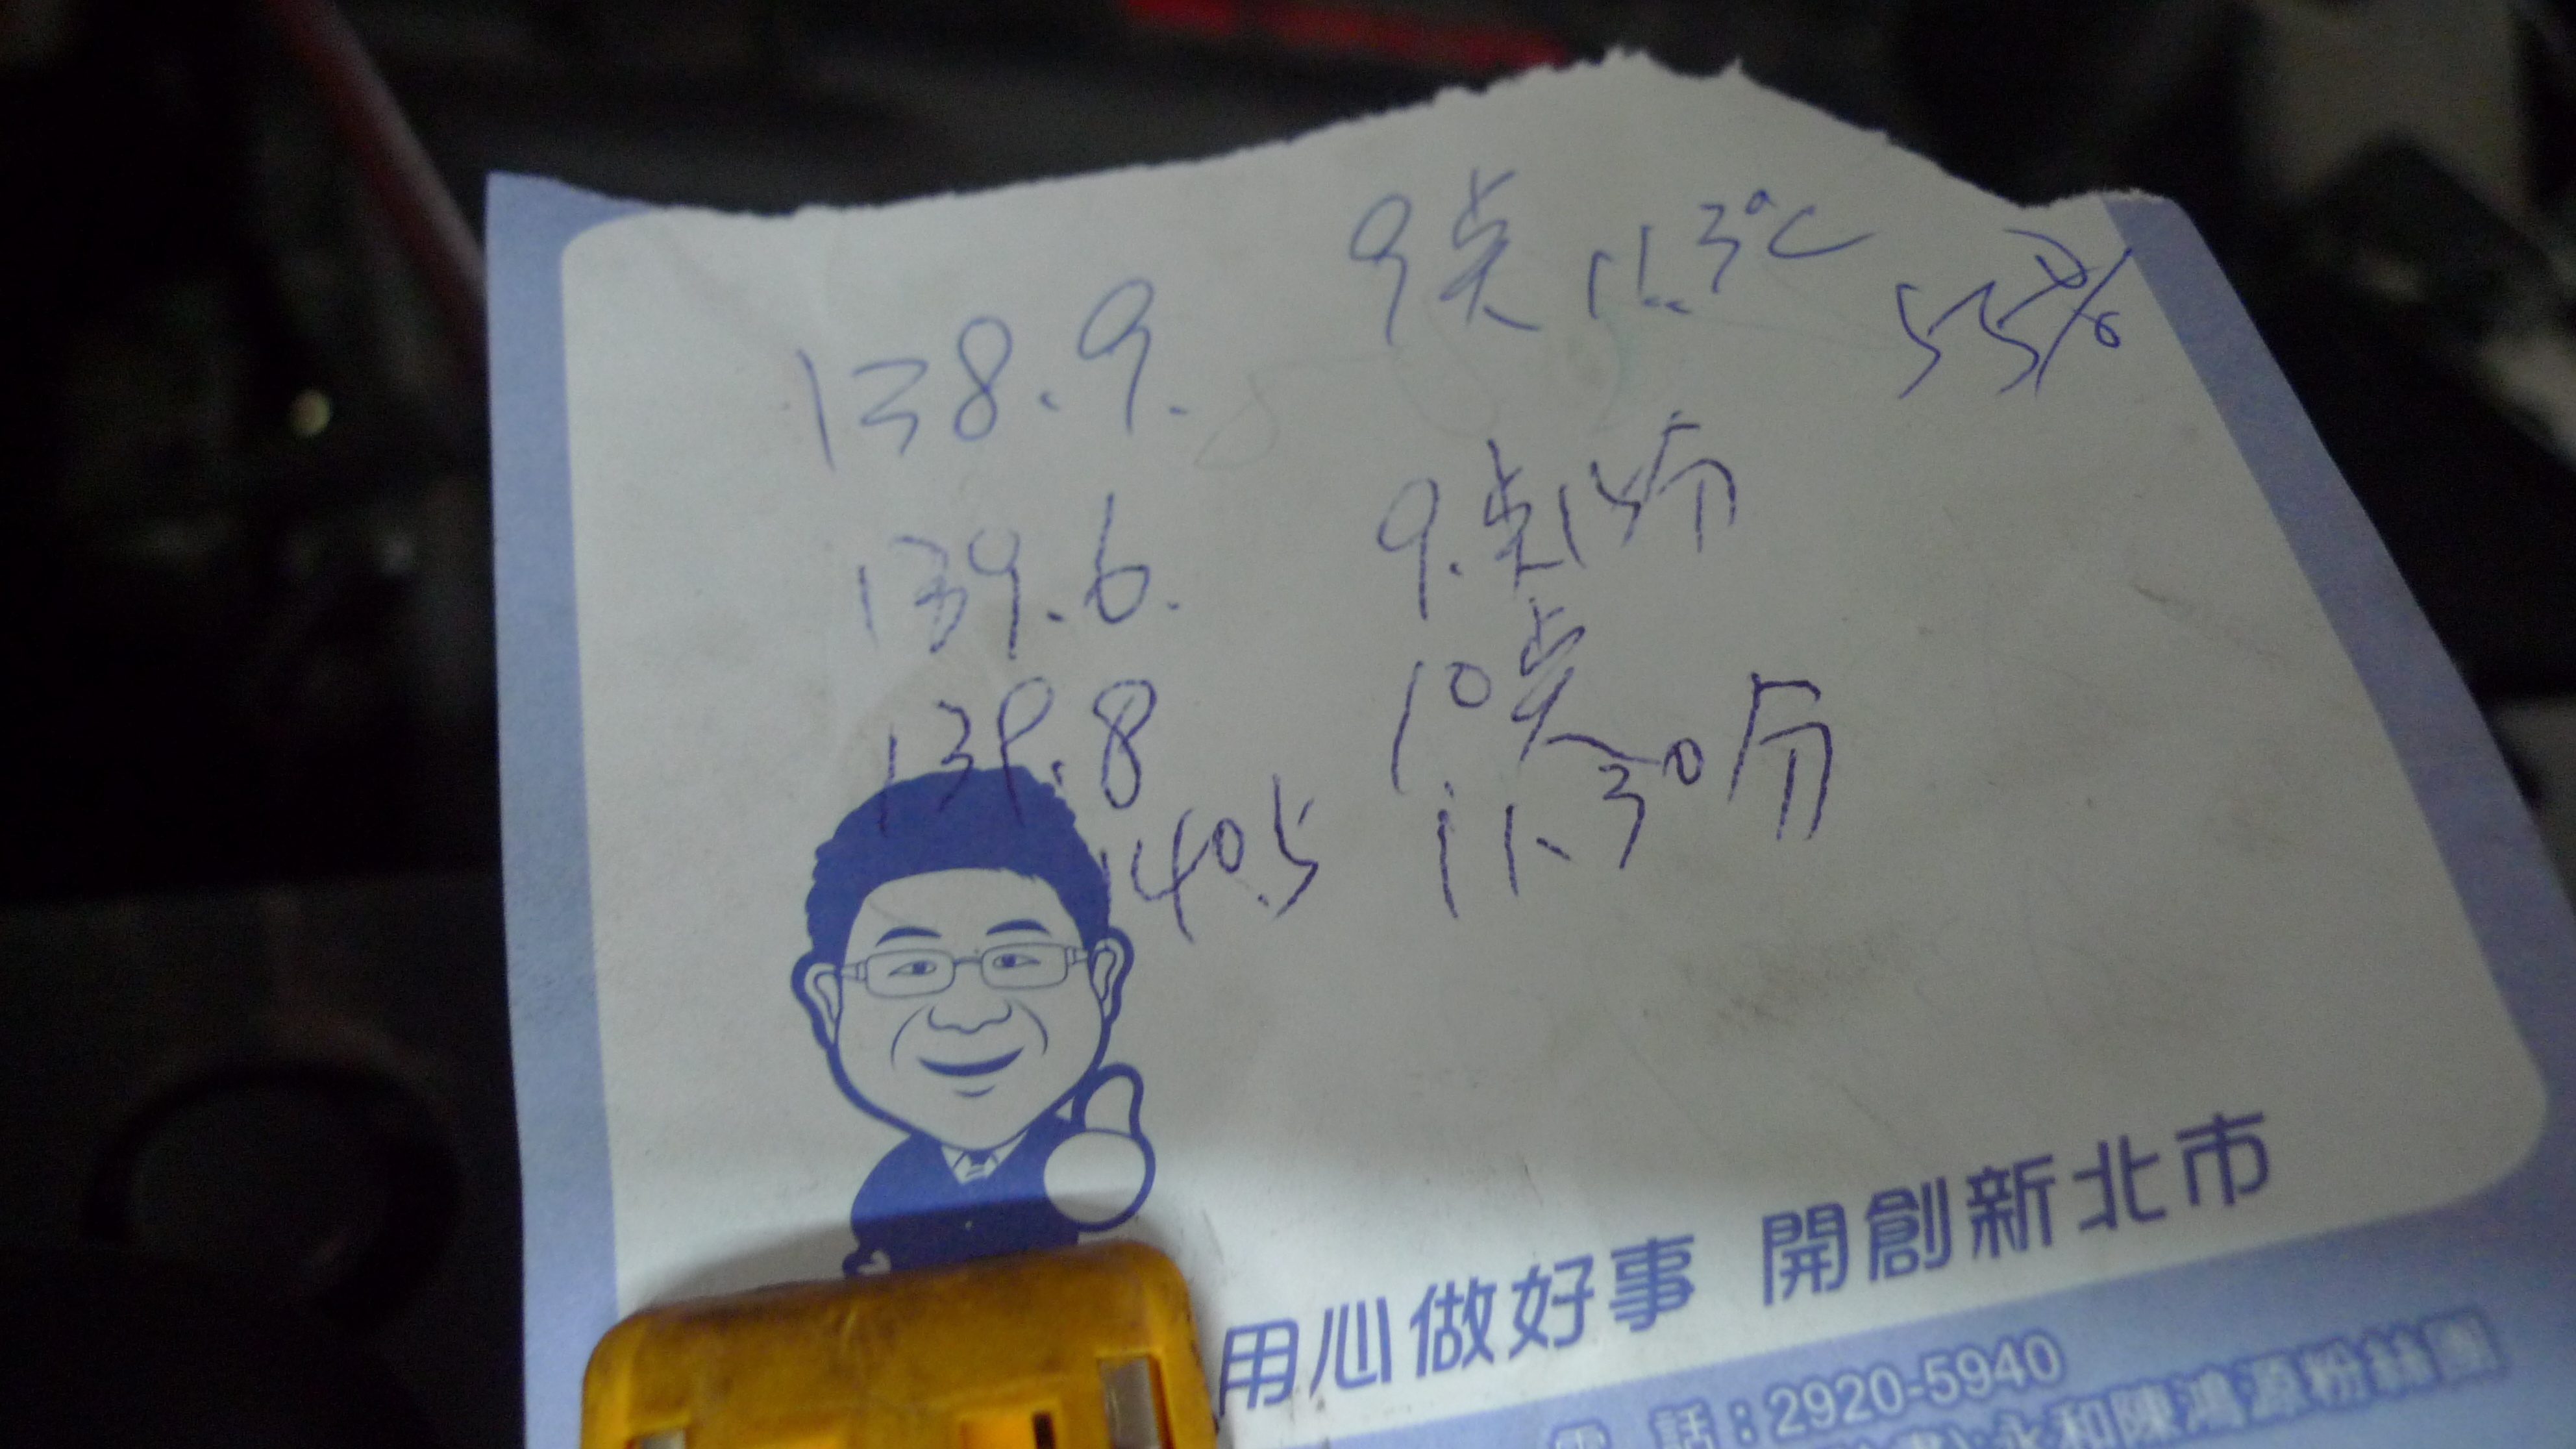 138.9. 9点 11.3°C 55%
139.6. 9.点15分
139.8 10点
140.5 11.30分
用心做好事 開創新北市
電 話：2920-5940
永和陳鴻源粉絲團